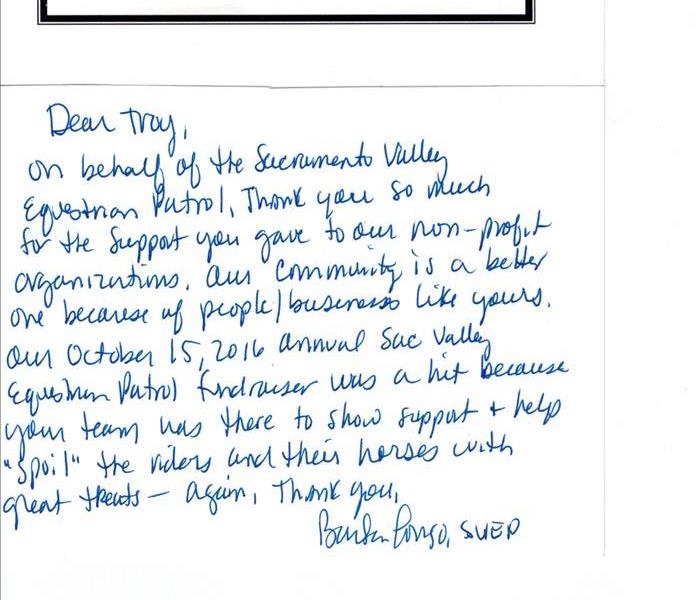 Dear Troy,
on behalf of the Sacramento Valley
Equestrian Patrol, Thank you so much
for the support you gave to our non-profit
organizations. Our community is a better
one because of people/businesses like yours.
Our October 15, 2016 annual Sac Valley
Equestrian Patrol fundraiser was a hit because
your team was there to show support + help
"spoil" the riders and their horses with
great treats — Again, Thank you,
SVEP